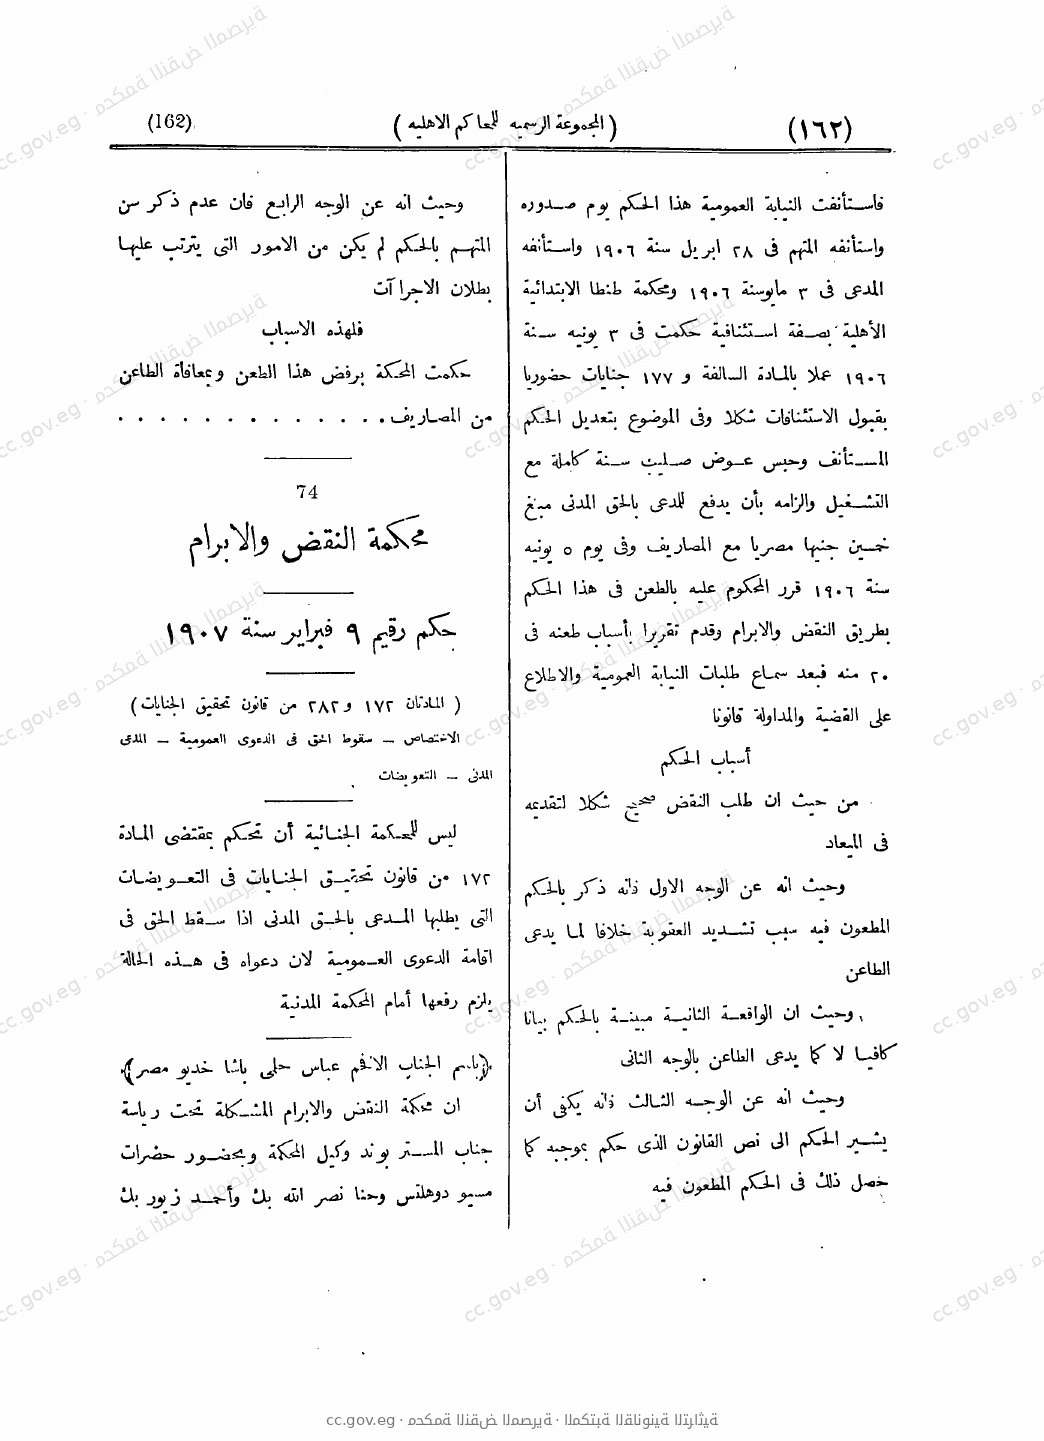 (١٦٢)
( المجموعة الرسميه للمحاكم الاهليه )
(162)
فاستأنفت النيابة العمومية هذا الحكم يوم صدوره
واستأنفه المتهم فى ٢٨ ابريل سنة ١٩٠٦ واستأنفه
المدعى فى ٣ مايوسنة ١٩٠٦ ومحكمة طنطا الابتدائية
الأهلية بصفة استئنافية حكمت فى ٣ يونيه سنة
١٩٠٦ عملا بالمادة السالفة و ١٧٧ جنايات حضوريا
بقبول الاستئنافات شكلا وفى الموضوع بتعديل الحكم
المستأنف وحبس عوض صليب سنة كاملة مع
التشغيل والزامه بأن يدفع للمدعى بالحق المدنى مبلغ
خمسين جنيها مصريا مع المصاريف وفى يوم ٥ يونيه
سنة ١٩٠٦ قرر المحكوم عليه بالطعن فى هذا الحكم
بطريق النقض والابرام وقدم تقريرا بأسباب طعنه فى
٢٠ منه فبعد سماع طلبات النيابة العمومية والاطلاع
على القضية والمداولة قانونا
أسباب الحكم
من حيث ان طلب النقض صحيح شكلا لتقديمه
فى الميعاد
وحيث انه عن الوجه الاول فانه ذكر بالحكم
المطعون فيه سبب تشديد العقوبة خلافا لما يدعى
الطاعن
وحيث ان الواقعة الثانية مبينة بالحكم بيانا
كافيا لا كما يدعى الطاعن بالوجه الثانى
وحيث انه عن الوجه الثالث فانه يكفى أن
يشير الحكم الى نص القانون الذى حكم بموجبه كما
حصل ذلك فى الحكم المطعون فيه
وحيث انه عن الوجه الرابع فان عدم ذكر سن
المتهم بالحكم لم يكن من الامور التى يترتب عليها
بطلان الاجراآت
فلهذه الاسباب
حكمت المحكمة برفض هذا الطعن وبمعافاة الطاعن
من المصاريف . . . . . . . . . . . . .
74
محكمة النقض والابرام
حكم رقيم ٩ فبراير سنة ١٩٠٧
( المادتان ١٧٢ و٢٨٢ من قانون تحقيق الجنايات )
الاختصاص ــ سقوط الحق فى الدعوى العمومية ــ المدعى
المدنى ــ التعويضات
ليس للمحكمة الجنائية أن تحكم بمقتضى المادة
١٧٢ من قانون تحقيق الجنايات فى التعويضات
التى يطلبها المدعى بالحق المدنى اذا سقط الحق فى
اقامة الدعوى العمومية لان دعواه فى هذه الحالة
يلزم رفعها أمام المحكمة المدنية
(باسم الجناب الافخم عباس حلمى باشا خديو مصر)
ان محكمة النقض والابرام المشكلة تحت رياسة
جناب المستر بوند وكيل المحكمة وبحضور حضرات
مسيو دوهلتس وحنا نصر الله بك وأحمد زيور بك
cc.gov.eg · محكمة النقض المصرية · المكتبة القانونية التراثية